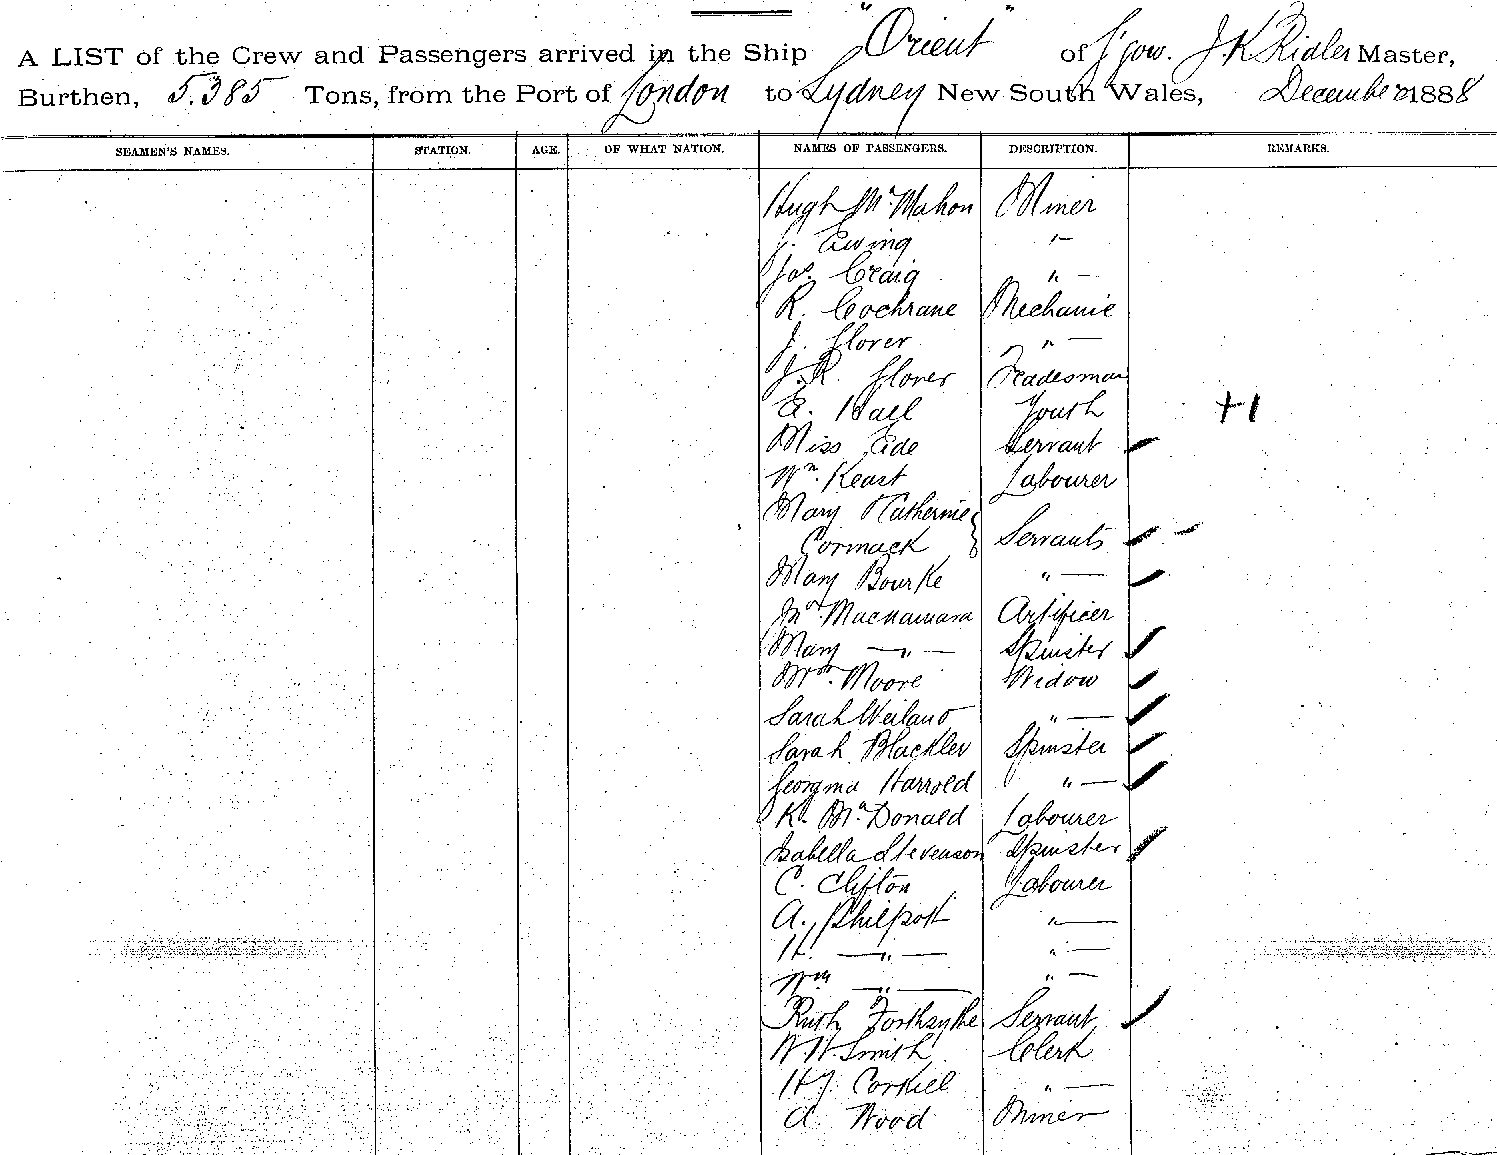 A LIST of the Crew and Passengers arrived in the Ship "Orient" of G'gow. J.K Ridler Master,
Burthen, 5.385 Tons, from the Port of London to Sydney New South Wales, December 1888
SEAMEN'S NAMES. STATION. AGE. OF WHAT NATION. NAMES OF PASSENGERS. DESCRIPTION. REMARKS.
Hugh McMahon Miner
J. Ewing " —
Jas. Craig " —
R. Cochrane Mechanic
J. Glover " —
J.R. Glover Tradesman
E. Hall Youth +1
Miss Eide Servant
Wm. Keast Labourer
Mary Catherine
Cormack } Servants
Mary Bourke " —
Macnamara Artificer
Mary — " — Spinster
Mrs. Moore Widow
Sarah Weiland " —
Sarah Blackler Spinster
Georgina Harrold " —
K. McDonald Labourer
Isabella Stevenson Spinster
C. Clifton Labourer
A. Philpott " —
H. — " — " —
Wm — " — " —
Ruth Forthsythe Servant
W W Smith Clerk
H J. Corkill " —
A Wood Miner